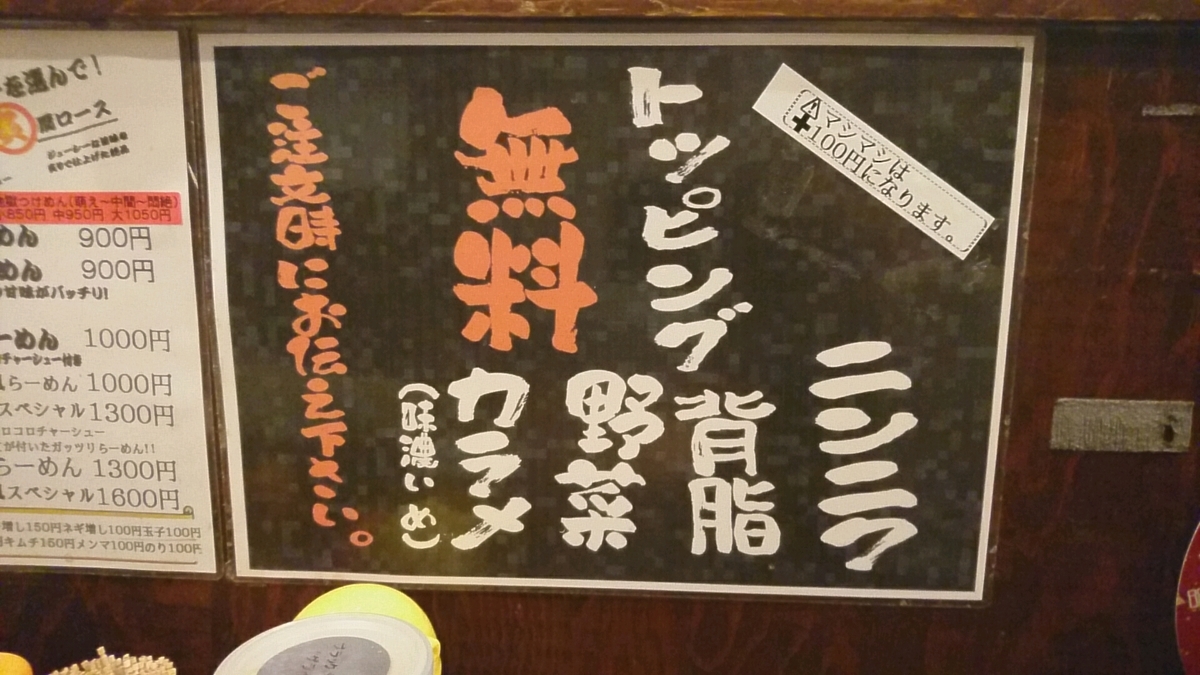 ⚠マシマシは
✚100円になります。
トッピング
無料
ニンニク
背脂
野菜
カラメ
(味濃いめ)
ご注文時にお伝え下さい。
を選んで!
肩ロース
つけめん(萌え～中間～悶絶)
小850円 中950円 大1050円
めん 900円
めん 900円
甘味がバッチリ!
ーめん 1000円
チャーシュー付き
らーめん 1000円
スペシャル 1300円
ロコロチャーシュー
が付いたガッツリらーめん!!
らーめん 1300円
スペシャル 1600円。
増し150円ネギ増し100円玉子100円
キムチ150円メンマ100円のり100円